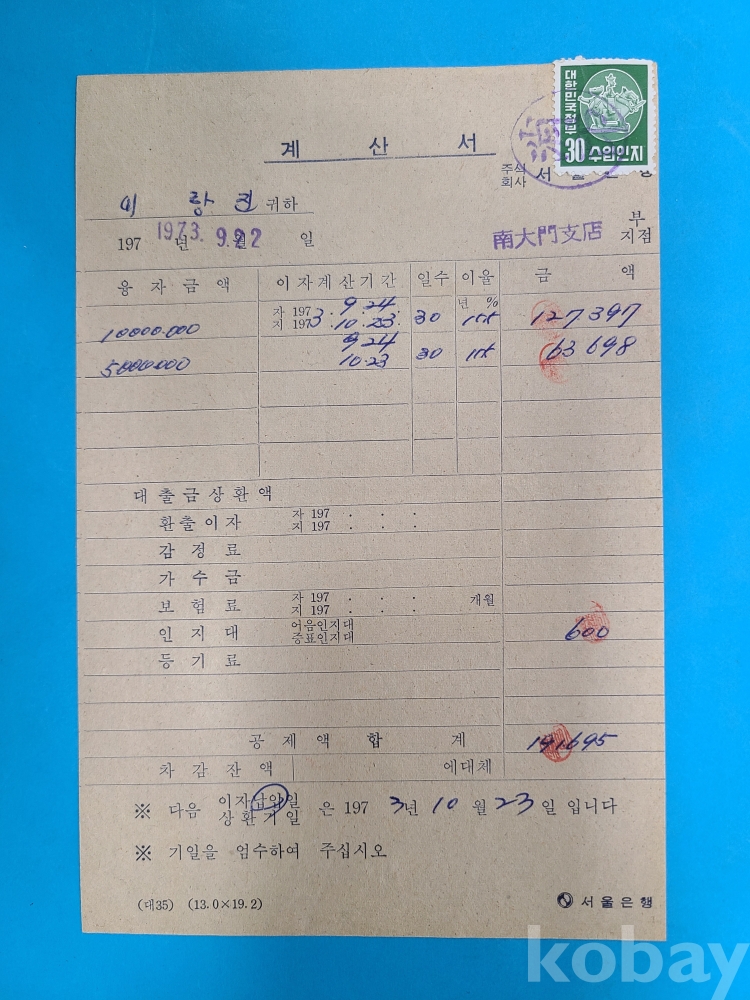 대한민국정부
30 수입인지
계 산 서
주식회사 서울은행
귀하
197 년 월 일
1973. 9. 22
南大門支店
부
지점
융자금액 이자계산기간 일수 이율 금 액
년 %
자 1973. 9. 24
지 1973. 10. 23.
10000.000 30 127397
9 24
5000.000 10.23 30 63698
대출금상환액
환출이자 자 197 . . .
지 197 . . .
감정료
가수금
보험료 자 197 . . . 개월
지 197 . . .
인지대 어음인지대
증표인지대 600
등기료
공제액합계 191695
차감잔액 에대체
※ 다음 이자납입일
상환기일 은 1973년 10월 23일 입니다
※ 기일을 엄수하여 주십시오
(대35) (13.0×19.2) 서울은행
kobay